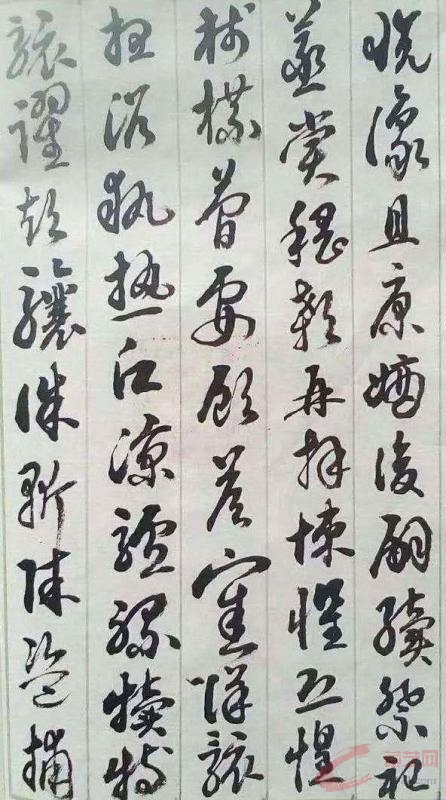 悦豫且康嫡後嗣續祭祀
蒸嘗稽顙再拜悚懼恐惶
牋牒簡要顧答審詳骸
浴執熱願涼驢騾犢特
駭躍超驤誅斬賊盜捕